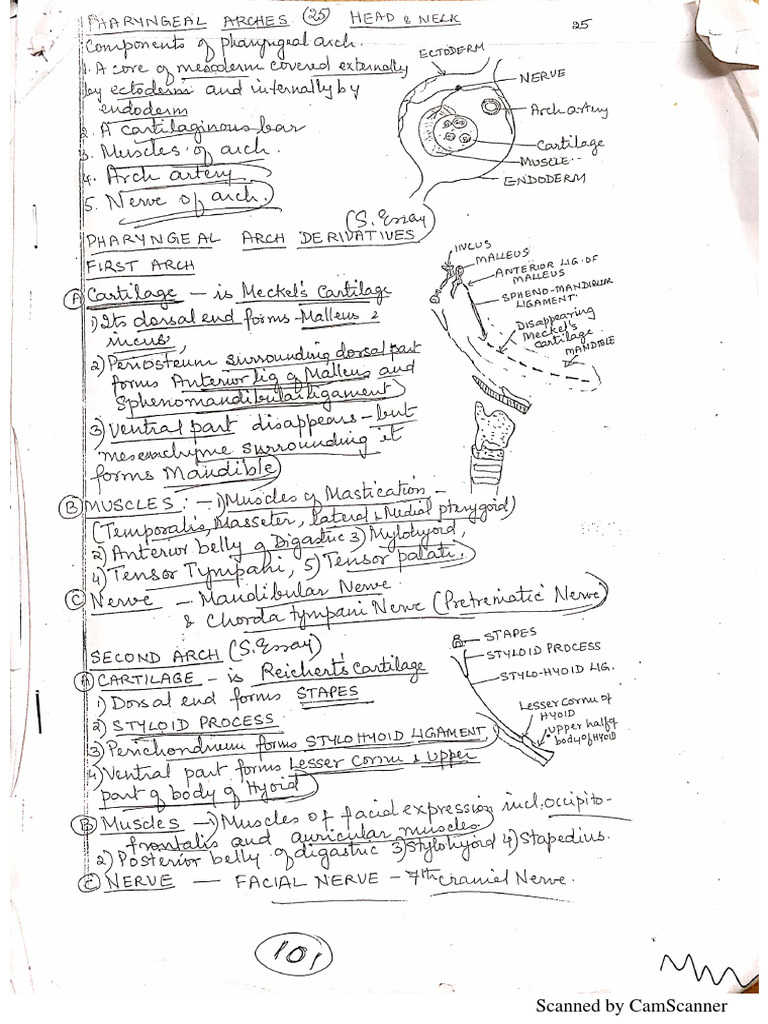 PHARYNGEAL ARCHES (25) HEAD & NECK
25
Components of pharyngeal arch.
1. A core of mesoderm covered externally
by ectoderm and internally by
endoderm
2. A cartilaginous bar
3. Muscles of arch.
4. Arch artery.
5. Nerve of arch.
ECTODERM
NERVE
Arch artery
Cartilage
MUSCLE
ENDODERM
(S. Essay)
PHARYNGEAL ARCH DERIVATIVES
FIRST ARCH
A Cartilage – is Meckel's Cartilage
1) Its dorsal end forms – Malleus &
incus,
2) Periosteum surrounding dorsal part
forms Anterior lig of Malleus and
Sphenomandibular ligament
3) Ventral part disappears – but
mesenchyme surrounding it
forms Mandible
INCUS
MALLEUS
ANTERIOR LIG. OF
MALLEUS
SPHENO-MANDIBULAR
LIGAMENT
Disappearing
Meckel's
cartilage
MANDIBLE
B MUSCLES: – 1) Muscles of Mastication –
(Temporalis, Masseter, lateral & Medial pterygoid)
2) Anterior belly of Digastric 3) Mylohyoid,
4) Tensor Tympani, 5) Tensor palati,
C Nerve – Mandibular Nerve
& Chorda tympani Nerve (Pretrematic Nerve)
SECOND ARCH (S. Essay)
A CARTILAGE – is Reichert's Cartilage
1) Dorsal end forms STAPES
2) STYLOID PROCESS
3) Perichondrium forms STYLOHYOID LIGAMENT
4) Ventral part forms Lesser Cornu & upper
part of body of Hyoid
STAPES
STYLOID PROCESS
STYLO-HYOID LIG.
Lesser cornu of
HYOID
upper half of
body of HYOID
B Muscles – 1) Muscles of facial expression incl. occipito-
frontalis and auricular muscles
2) Posterior belly of digastric 3) Stylohyoid 4) Stapedius.
C NERVE — FACIAL NERVE – 7th Cranial Nerve.
101
Scanned by CamScanner